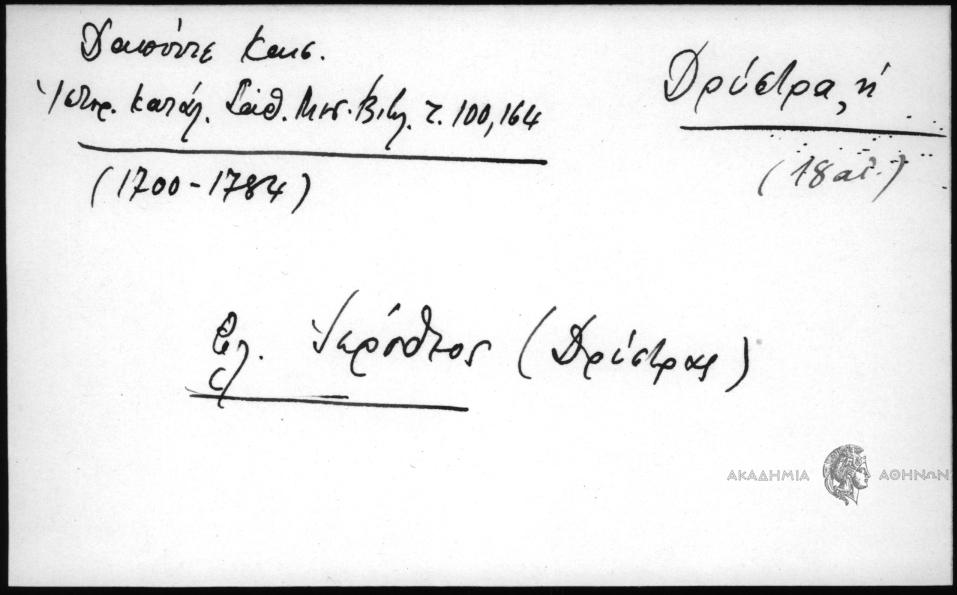 Δαπόντε Κωνσ.
Ἱστορ. Κατάλ. Σάθ. Μεσ. Βιβλ. τ. 100, 164
(1700-1784)
Δρύστρα, ἡ
(18 αἰ.)
βλ. Ἱερόθεος (Δρύστρας)
ΑΚΑΔΗΜΙΑ ΑΘΗΝΩΝ